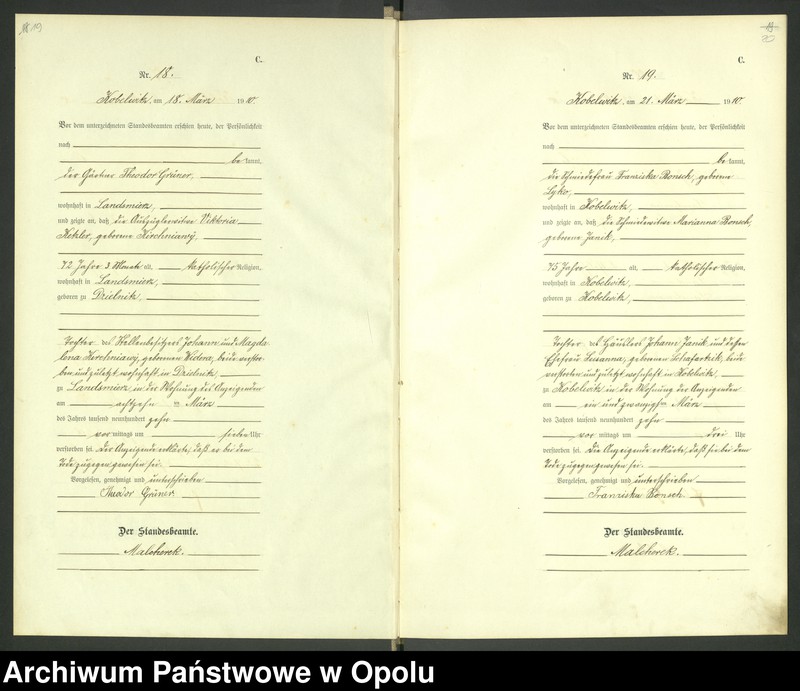 19
C.
Nr. 18.
Kobelwitz am 18. März 1910.
Vor dem unterzeichneten Standesbeamten erschien heute, der Persönlichkeit
nach
bekannt,
der Gärtner Theodor Grüner,
wohnhaft in Landsmierz,
und zeigte an, daß die Auszüglerwitwe Viktoria
Ketzler, geborene Kirchniawy,
72 Jahre 3 Monate alt, katholischer Religion,
wohnhaft in Landsmierz,
geboren zu Dzielnitz,
Tochter des Stellenbesitzers Johann und Magda
lena Kirchniawy, geborenen, beide verstor
ben und zuletzt wohnhaft in Dzielnitz
zu Landsmierz in der Wohnung des Anzeigenden
am achtzehnten März
des Jahres tausend neunhundert zehn
vormittags um sieben Uhr
verstorben sei. Der Anzeigende erklärte, daß er bei dem
Tode zugegen gewesen sei.
Vorgelesen, genehmigt und unterschrieben
Theodor Grüner
Der Standesbeamte.
Malcherek.
20
C.
Nr. 19.
Kobelwitz, am 21. März 1910.
Vor dem unterzeichneten Standesbeamten erschien heute, der Persönlichkeit
nach
bekannt,
die Schmiedefrau Franziska Bonsch, geborene
Lyko,
wohnhaft in Kobelwitz,
und zeigte an, daß die Schmiedewitwe Marianna Bonsch,
geborene Janik,
75 Jahre alt, katholischer Religion,
wohnhaft in Kobelwitz,
geboren zu Kobelwitz,
Tochter des Häuslers Johann Janik und dessen
Ehefrau Susanna, geborenen, beide
verstorben und zuletzt wohnhaft in Kobelwitz,
zu Kobelwitz in der Wohnung der Anzeigenden
am ein und zwanzigsten März
des Jahres tausend neunhundert zehn
vormittags um drei Uhr
verstorben sei. Die Anzeigende erklärte, daß sie bei dem
Tode zugegen gewesen sei.
Vorgelesen, genehmigt und unterschrieben
Franziska Bonsch
Der Standesbeamte.
Malcherek.
Archiwum Państwowe w Opolu